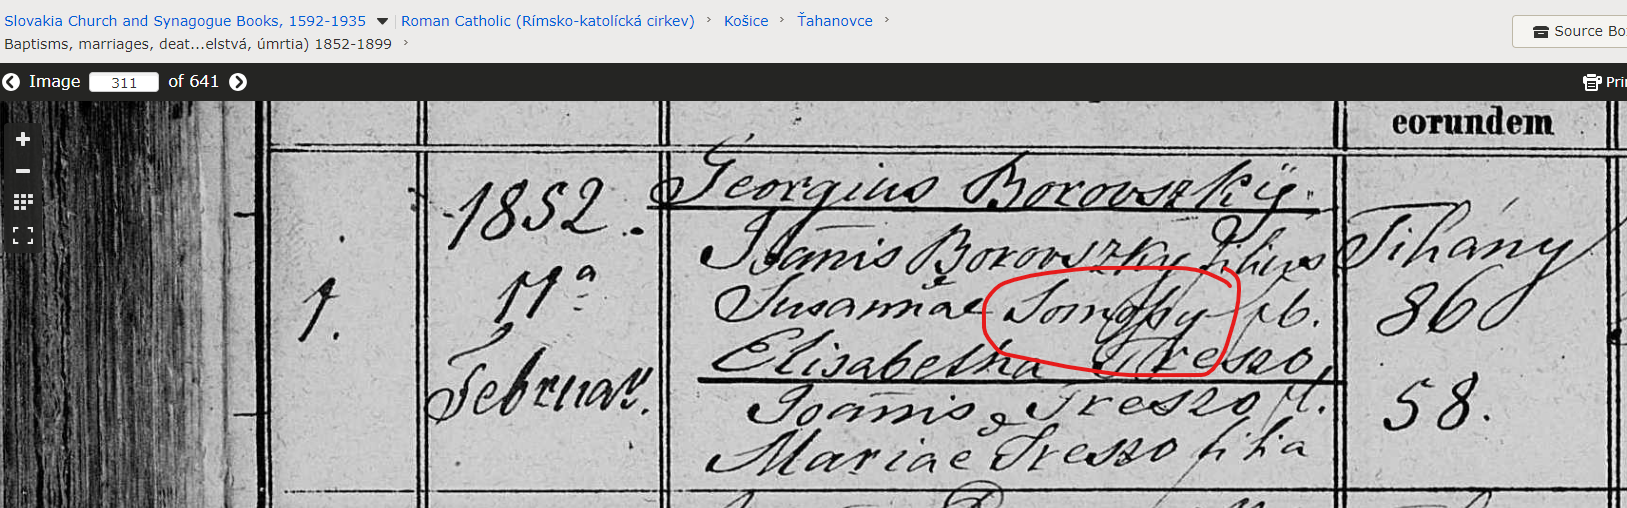 Slovakia Church and Synagogue Books, 1592-1935 Roman Catholic (Rímsko-katolícká cirkev) › Košice › Ťahanovce ›
Baptisms, marriages, deat...elstvá, úmrtia) 1852-1899 ›
Source Bo
Image 311 of 641
Prin
eorundem
1852.
Georgius Borovszky
Joanis Borovszky filius
Tihány
1.
11ª
Susannae fil.
86
Elisabetha Treszo
Februar.
Joanis Treszo et
58.
Mariae Treszo filia